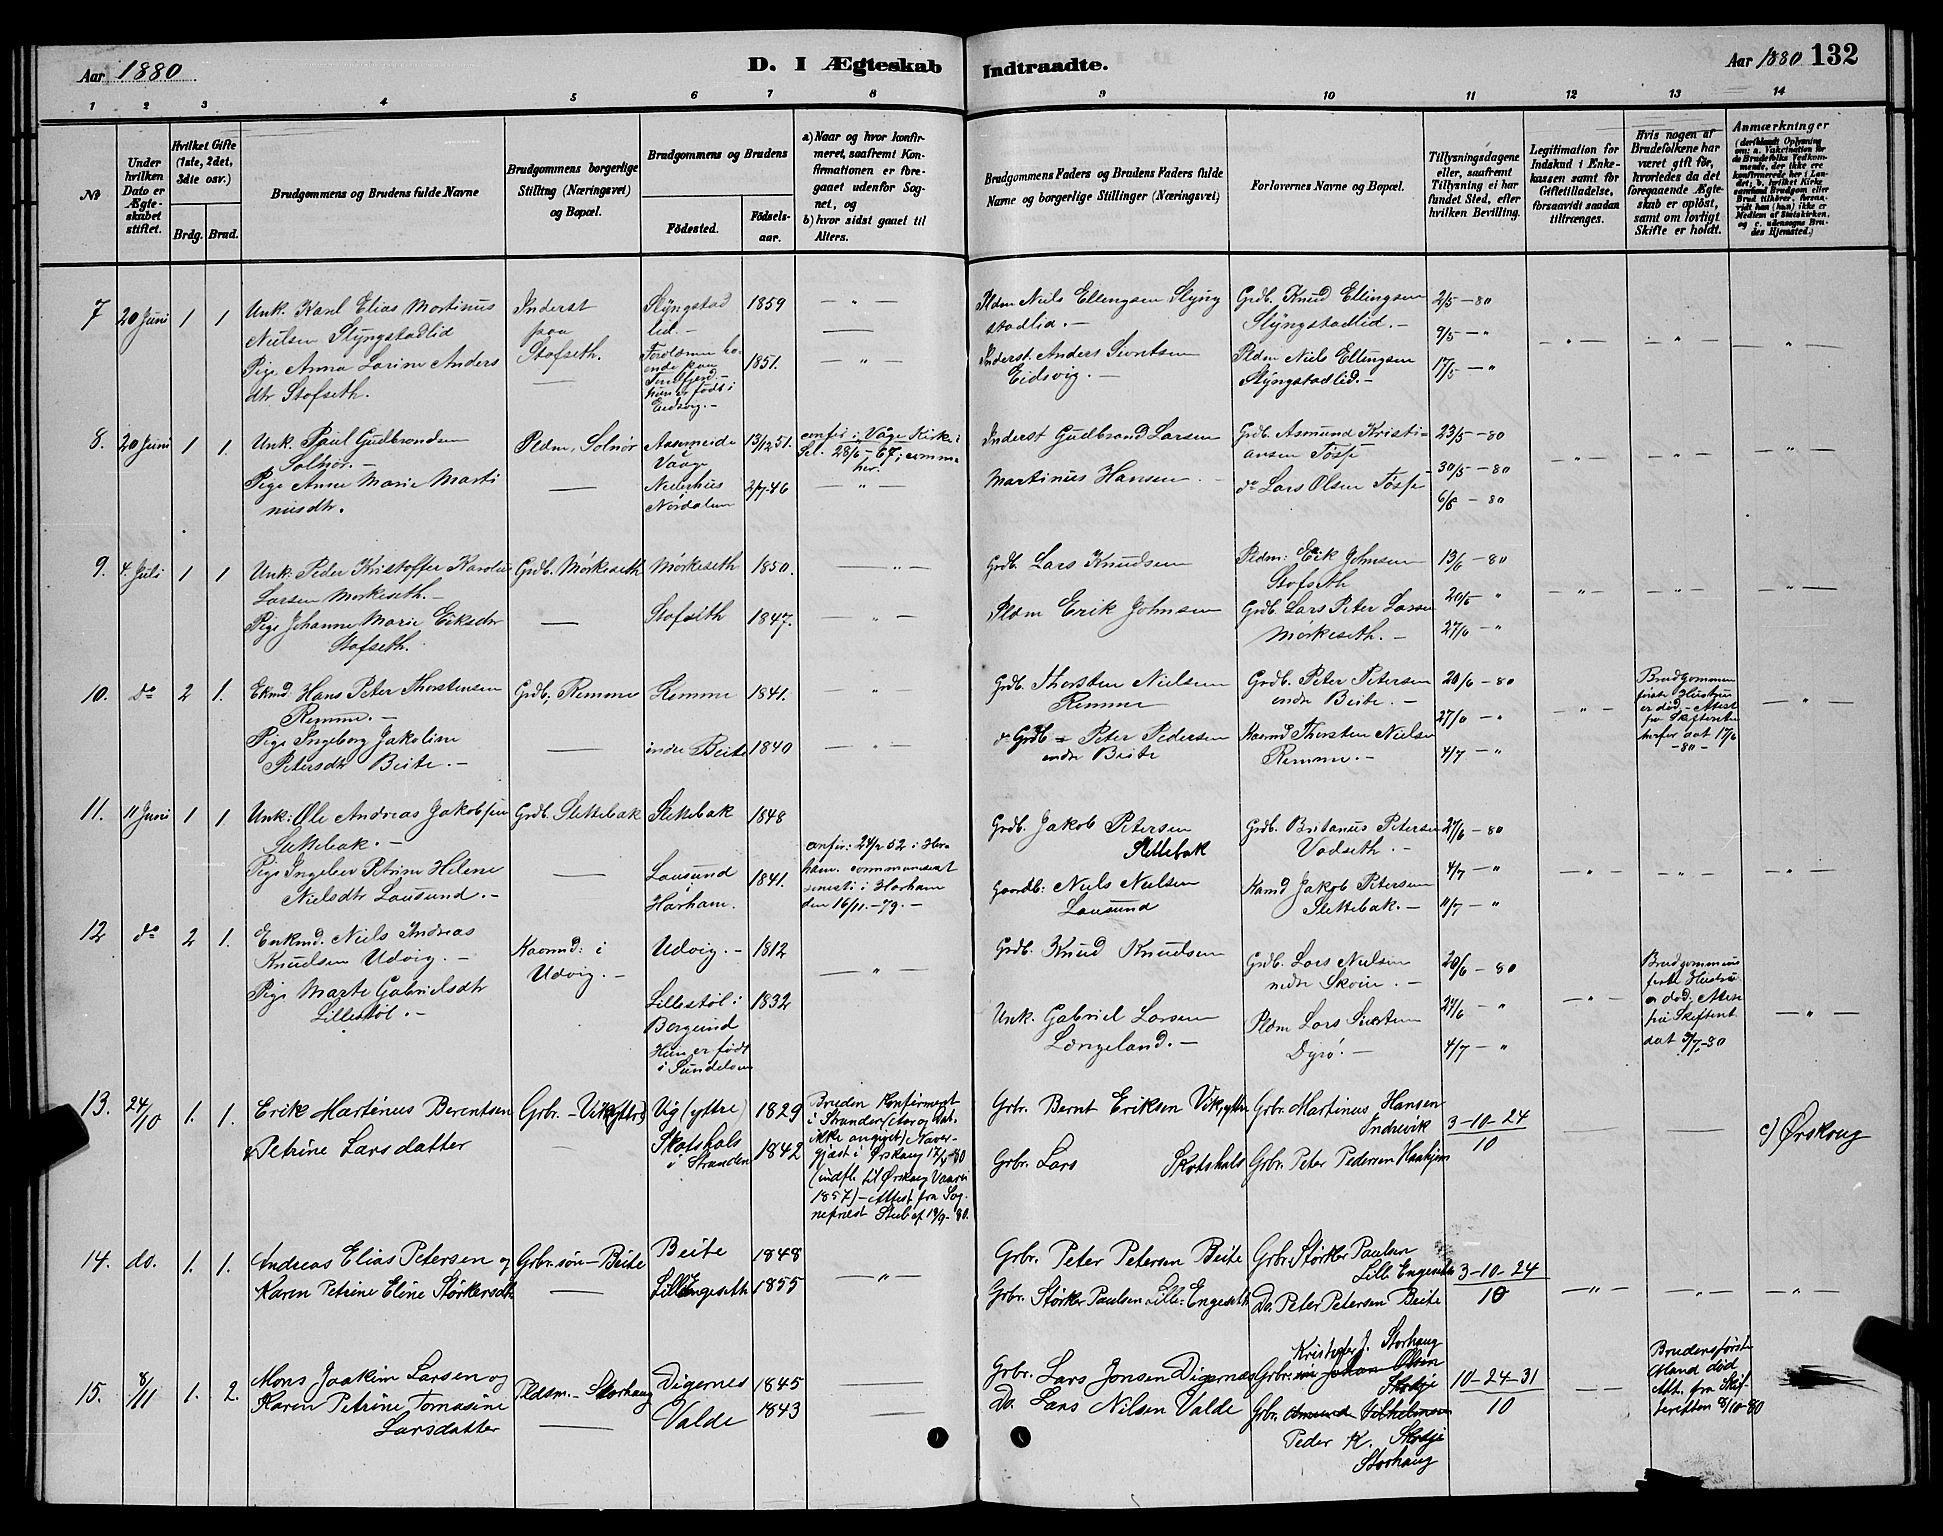 Aar 1880
D. I Ægteskab
Indtraadte.
Aar 1880 132
1 2 3 4 5 6 7 8 9 10 11 12 13 14
№
Under hvilken Dato er Ægteskabet stiftet.
Hvilket Gifte (1ste, 2det, 3die osv.)
Brdg. Brud.
Brudgommens og Brudens fulde Navne
Brudgommens borgerlige Stilling (Næringsvei) og Bopæl.
Brudgommens og Brudens
Fødested.
Fødselsaar.
a) Naar og hvor konfirmeret, saafremt Konfirmationen er foregaaet udenfor Sognet, og
b) hvor sidst gaaet til Alters.
Brudgommens Faders og Brudens Faders fulde Navne og borgerlige Stillinger (Næringsvei)
Forlovernes Navne og Bopæl.
Tillysningsdagene eller, saafremt Tillysning ei har fundet Sted, efter hvilken Bevilling.
Legitimation for Indskud i Enkekassen samt for Giftetilladelse, forsaavidt saadan tiltrænges.
Hvis nogen af Brudefolkene har været gift før, hvorledes da det foregaaende Ægteskab er opløst, samt om lovligt Skifte er holdt.
Anmærkninger
(deriblandt Oplysning om: a. Vaccination for de Brudefolks Vedkommende, der ikke ere konfirmerede her i Landet; b. hvilket Kirkesamfund Brudgom eller Brud tilhører, forsaavidt han (hun) ikke er Medlem af Statskirken, og c. udensogns Brudes Hjemsted.)
7 20 Juni 1 1
Unk. Karl Elias Martinus
Nielsen Slyngstadlid
Pige Anna Lorine Anders
dtr Stofseth.
Inderst
paa
Stofseth.
Slyngstad
lid. 1859
født i
Eidsvig. 1851.
Pldm Niels Ellingsen Slyng
stadlid.
Inderst. Anders
Eidsvig.
Grdb. Knud Ellingsen
Slyngstadlid.
Pldm Niels Ellingsen
Slyngstadlid.
2/5 - 80
9/5 - "
17/5 - "
8. 20 Juni 1 1.
Unk. Paul Gudbrandsen
Solnør.
Pige Anne Marie Marti
nusdtr.
Pldm, Solnør
Vaage 13/12 51.
Nørdalen 2/7-46
confir i Våge Kirke i
28/6-67
her.
Inderst Gudbrand Larsen
Martinus Hansen
Grdb. Asmund Kristi-
ansen Tøsse
do Lars Olsen Tøsse
23/5 - 80
30/5 - 80
6/6 - 80
9. 4. Juli 1 1
Unk. Peder Kristoffer Karolus
Larsen Mørkeseth.
Pige Johanne Marie Eriksdtr
Stofseth.
Grdb. Mørkeseth
Mørkeseth 1850.
Stofseth 1847.
Grdb. Lars Knudsen
Pldm Erik Johnsen
Pldm: Erik Johnsen
Stofseth
Grdb. Lars Peter Larsen
Mørkeseth.
13/6 - 80
20/6 "
27/6 - "
10. do 2 1.
Ekmd. Hans Peter Thorstensen
Remme.
Pige Ingeborg Jakoline
Petersdtr Beite.
Grdb, Remme
Remme 1841.
indre Beite 1840
Grdb. Thorsten Nielsen
Remme
Grdb Peter Pedersen
indre Beite
Grdb. Peter Petersen
indre Beite.
Kaarmd Thorsten Nielsen
Remme.
20/6 - 80
27/6 - "
4/7 - "
Brudgommens
første Hustru
er død - Attest
fra Skifteret
17/6
-80-
11. 11 Juni 1 1
Unk: Ole Andreas Jakobsen
Slettebak.
Pige Ingeber Petrine Helene
Nielsdtr Lausund.
Grdb. Slettebak
Slettebak 1848
Lausund
i
Harham. 1841.
confir: 52 i Har
ham. communiceret
senest i Harham
den 16/11.-79.
Grdb. Jakob Petersen
Slettebak
Gaardb: Niels Nielsen
Lausund
Grdb. Britanus Petersen
Vadseth.
Kamd Jakob Petersen
Slettebak.
27/6 - 80
4/7 - "
11/7 - "
12 do 2 1.
Enkmd. Niels Andreas
Knudsen Udvig.
Pige Marte Gabrielsdtr
Lillestøl.
Kaarmd: i
Udvig.
Udvig. 1812
Lillestøl i
Borgund
Hun er født
i Sundelven 1832
Grdb. Knud Knudsen
Unk. Gabriel Larsen
Længeland.
Grdb. Lars Nielsen
nedre
Pldm Lars Sivertsen
Dyrø.
20/6 - 80
27/6 - "
4/7 - "
Brudgommens
første Hustru
er død. Attest
fra Skifteret
dat 3/7-80
13. 24/10 1. 1.
Erik Martinus Berentsen
& Petrine Larsdatter
Grbr. - Vik (yttre)
Vig (yttre) 1829
Skotshals
i Stranden 1842
Bruden Konfirmeret
i Stranden (Aar og Dat.
ikke angivet) Naver-
gjæst i Ørskoug 80
(indfl. til Ørskoug Vaaren
1857) - Attest fra Sog-
nepræst Stub af 19/9-80.
Grbr. Bernt Eriksen Vik, yttre
Grbr. Lars Skotshals
Grbr. Martinus Hansen
Indrevik
Grbr. Peter Pedersen Haahjem
3-10-24
10
c) Ørskoug
14. do. 1. 1.
Andreas Elias Petersen og
Karen Petrine Eline Størkersdtr
Grbr. søn - Beite
Beite 1848
Lille Engeseth 1855
Grbr. Peter Petersen Beite
Grbr. Størker Paulsen Lille-Engeseth
Grbr. Størker Paulsen
Lille Engeseth
Do. Peter Petersen Beite
3-10-24
10
15. 8/11 1. 2.
Mons Joakim Larsen og
Karen Petrine Tomasine
Larsdatter
Pldsm. - Storhaug
Digernes 1845
Valde 1843
Grbr. Lars Jonsen Digernes
Do. Lars Nilsen Valde
Kristofer J. Storhaug
Grbr. Johan Olsen
Skodje
Grbr. Amund Vilhelmsen
Peder K. Skodje
Storhaug
10-24-31
10
Brudens første
Mand død
Att. fra Skif-
teretten 8/10-80